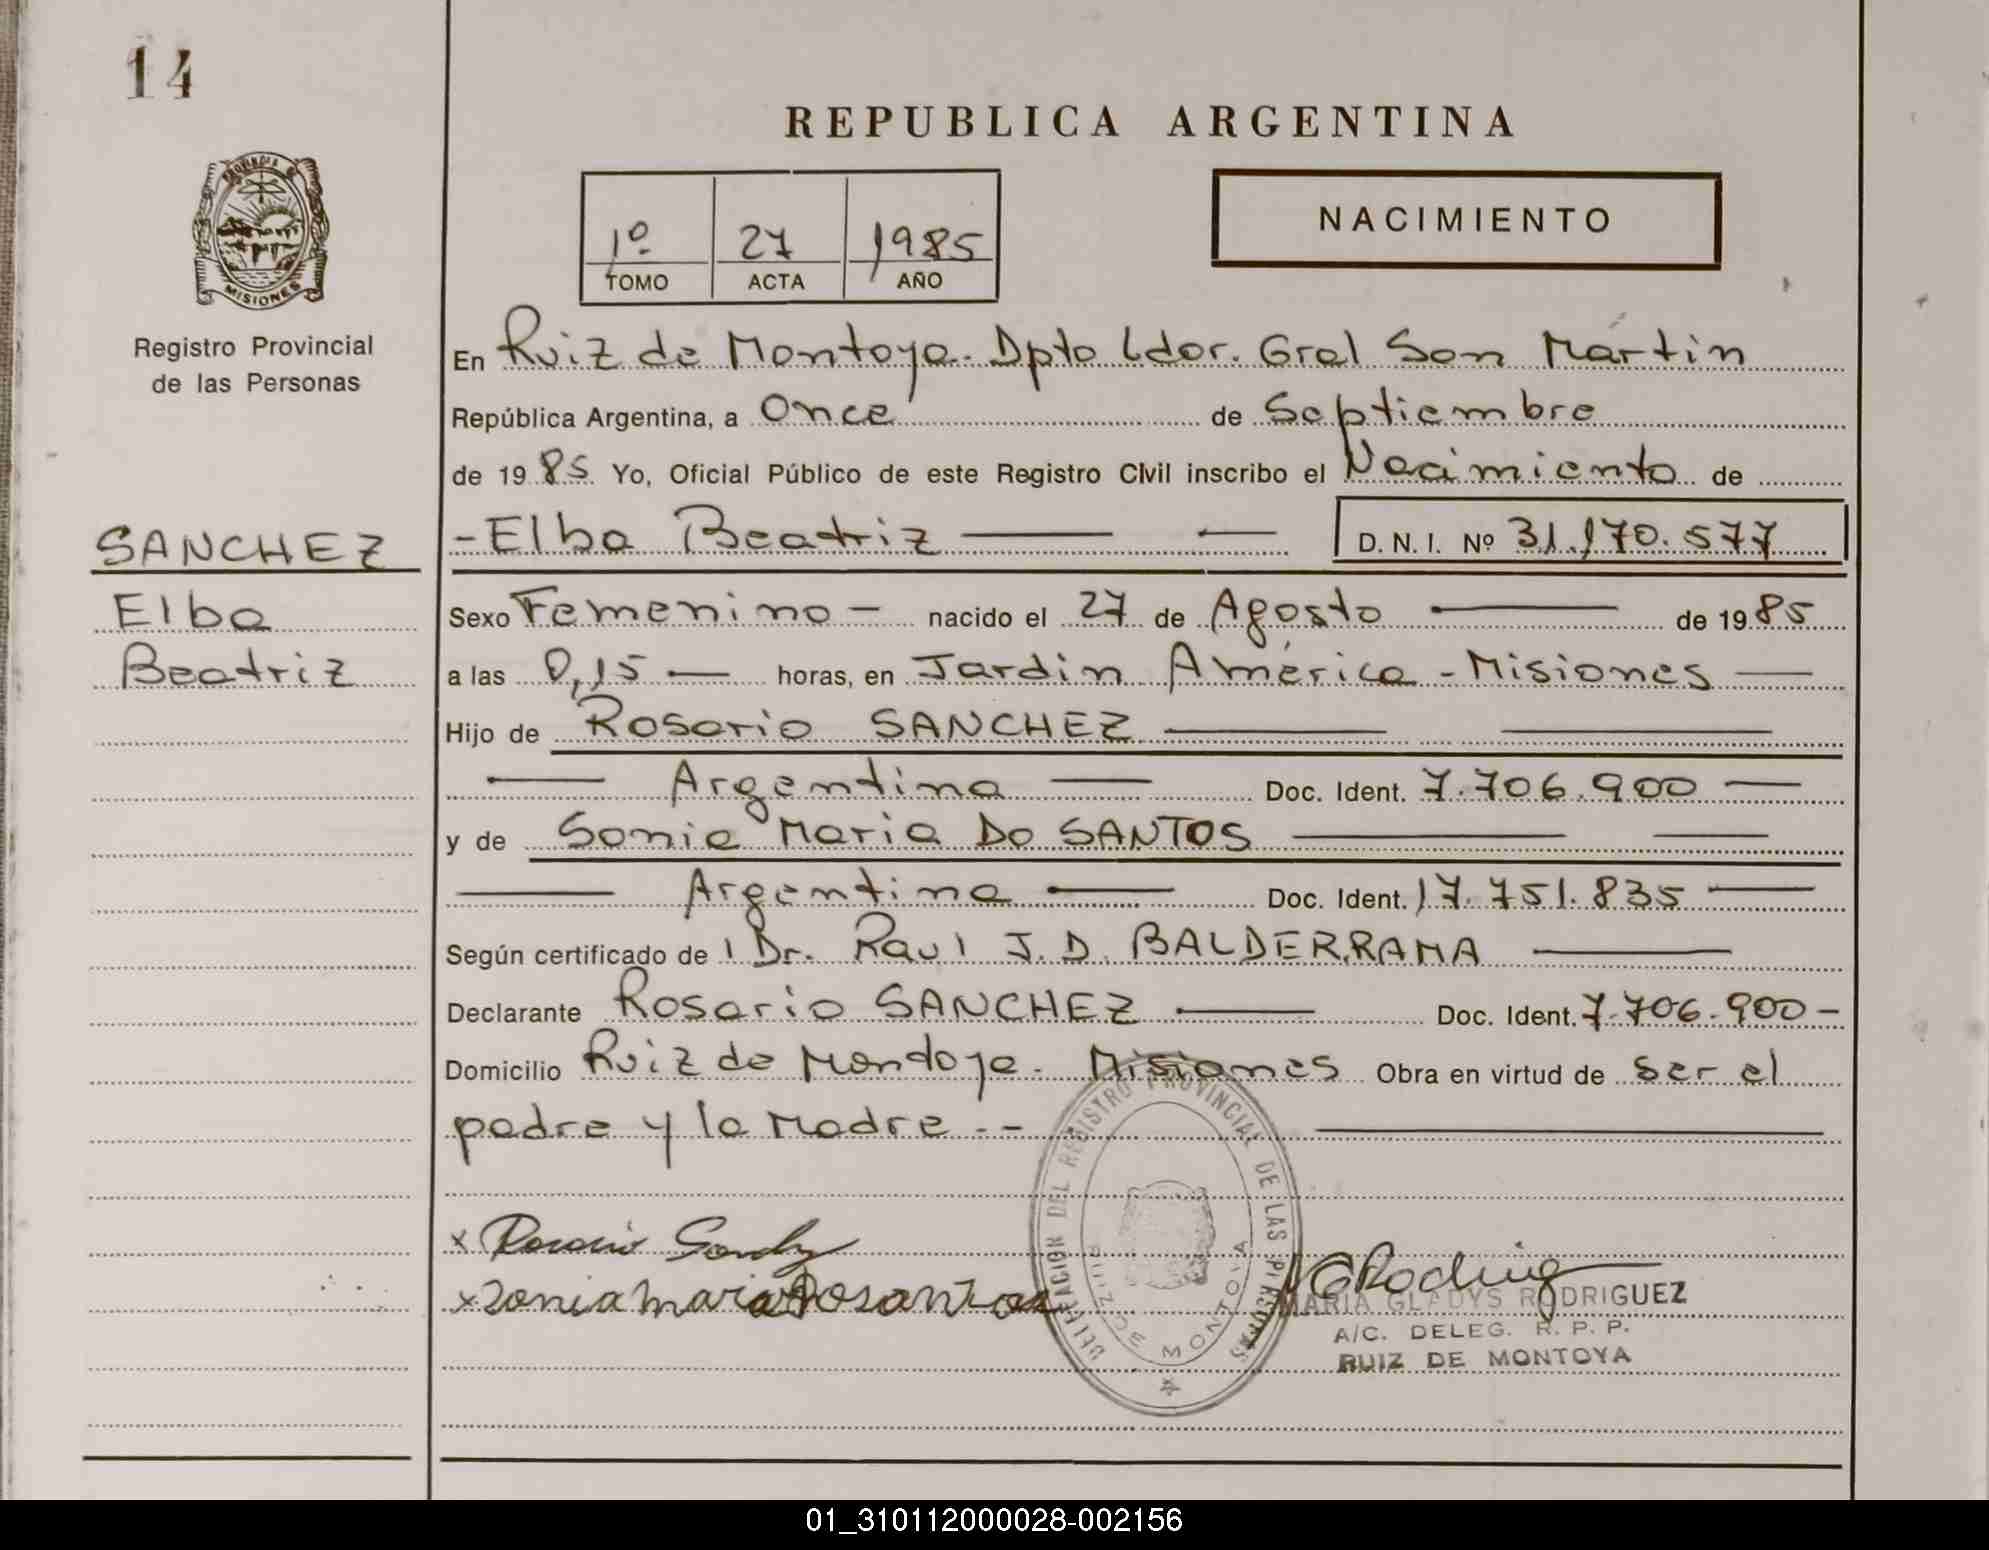 14
REPUBLICA ARGENTINA
PROVINCIA DE
MISIONES
Registro Provincial
de las Personas
1º 27 1985
TOMO ACTA AÑO
NACIMIENTO
En Ruiz de Montoya. Dpto Ldor. Gral San Martin
República Argentina, a Once de Septiembre
de 19 85 Yo, Oficial Público de este Registro Civil inscribo el Nacimiento de
SANCHEZ
Elba
Beatriz
- Elba Beatriz — — D.N.I. Nº 31.170.577
Sexo Femenino — nacido el 27 de Agosto — de 19 85
a las 0,15 — horas, en Jardin América - Misiones —
Hijo de Rosario SANCHEZ — —
— Argentina — Doc. Ident. 7.706.900 —
y de Sonia Maria Do SANTOS — —
— Argentina — Doc. Ident. 17.751.835 —
Según certificado de l Dr. Raul J. D. BALDERRAMA —
Declarante Rosario SANCHEZ — Doc. Ident. 7.706.900 -
Domicilio Ruiz de Montoya - Misiones Obra en virtud de ser el
padre y la Madre . - —
DELEGACION DEL REGISTRO PROVINCIAL DE LAS PERSONAS
RUIZ DE MONTOYA
x Rosario Sanchez
x Sonia Maria Dosantos
MGRodriguez
MARIA GLADYS RODRIGUEZ
A/C. DELEG. R. P. P.
RUIZ DE MONTOYA
01_310112000028-002156